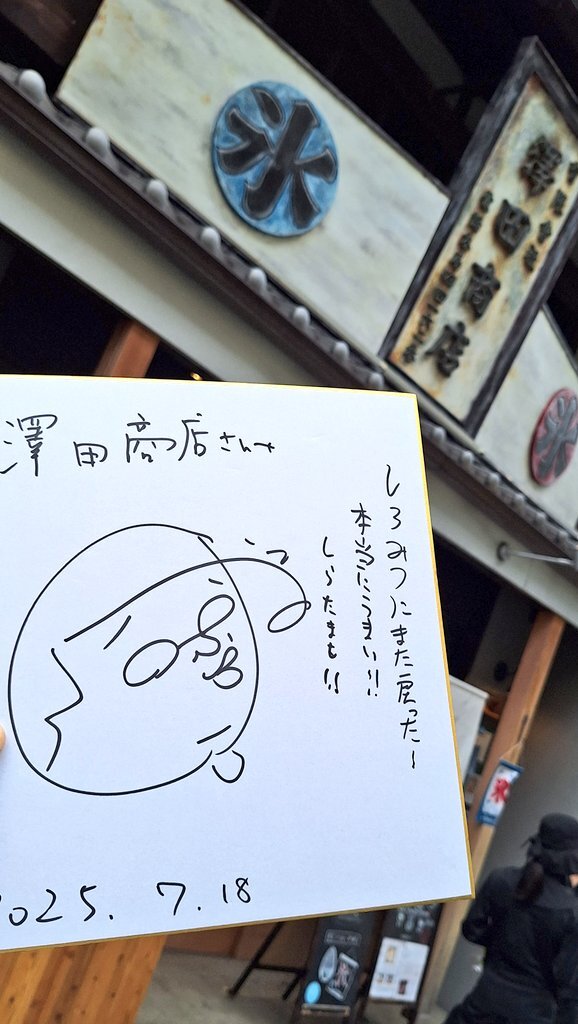 氷
澤田商店
氷
澤田商店さんへ
しろみつにまた戻った〜
本当にうまい!!
しらたまも!!
2025. 7. 18
氷